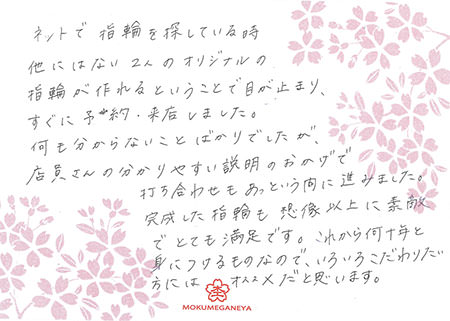 ネットで指輪を探している時
他にはない2人のオリジナルの
指輪が作れるということで目が止まり、
すぐに予約・来店しました。
何も分からないことばかりでしたが、
店員さんの分かりやすい説明のおかげで
打ち合わせもあっという間に進みました。
完成した指輪も想像以上に素敵
でとても満足です。これから何十年と
身につけるものなので、いろいろこだわりたい
方にはオススメだと思います。
MOKUMEGANEYA